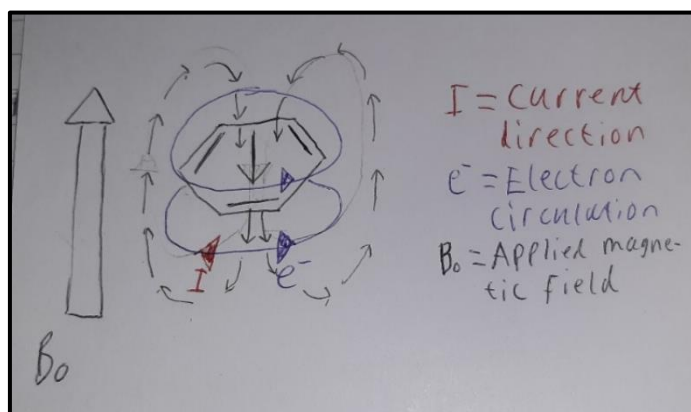 I = Current
direction
e⁻ = Electron
circulation
B₀ = Applied magne-
tic field
I
e⁻
B₀